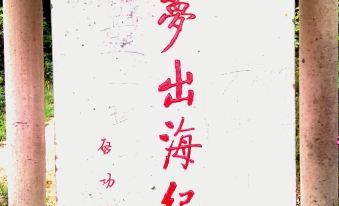 夢出海紀
启功